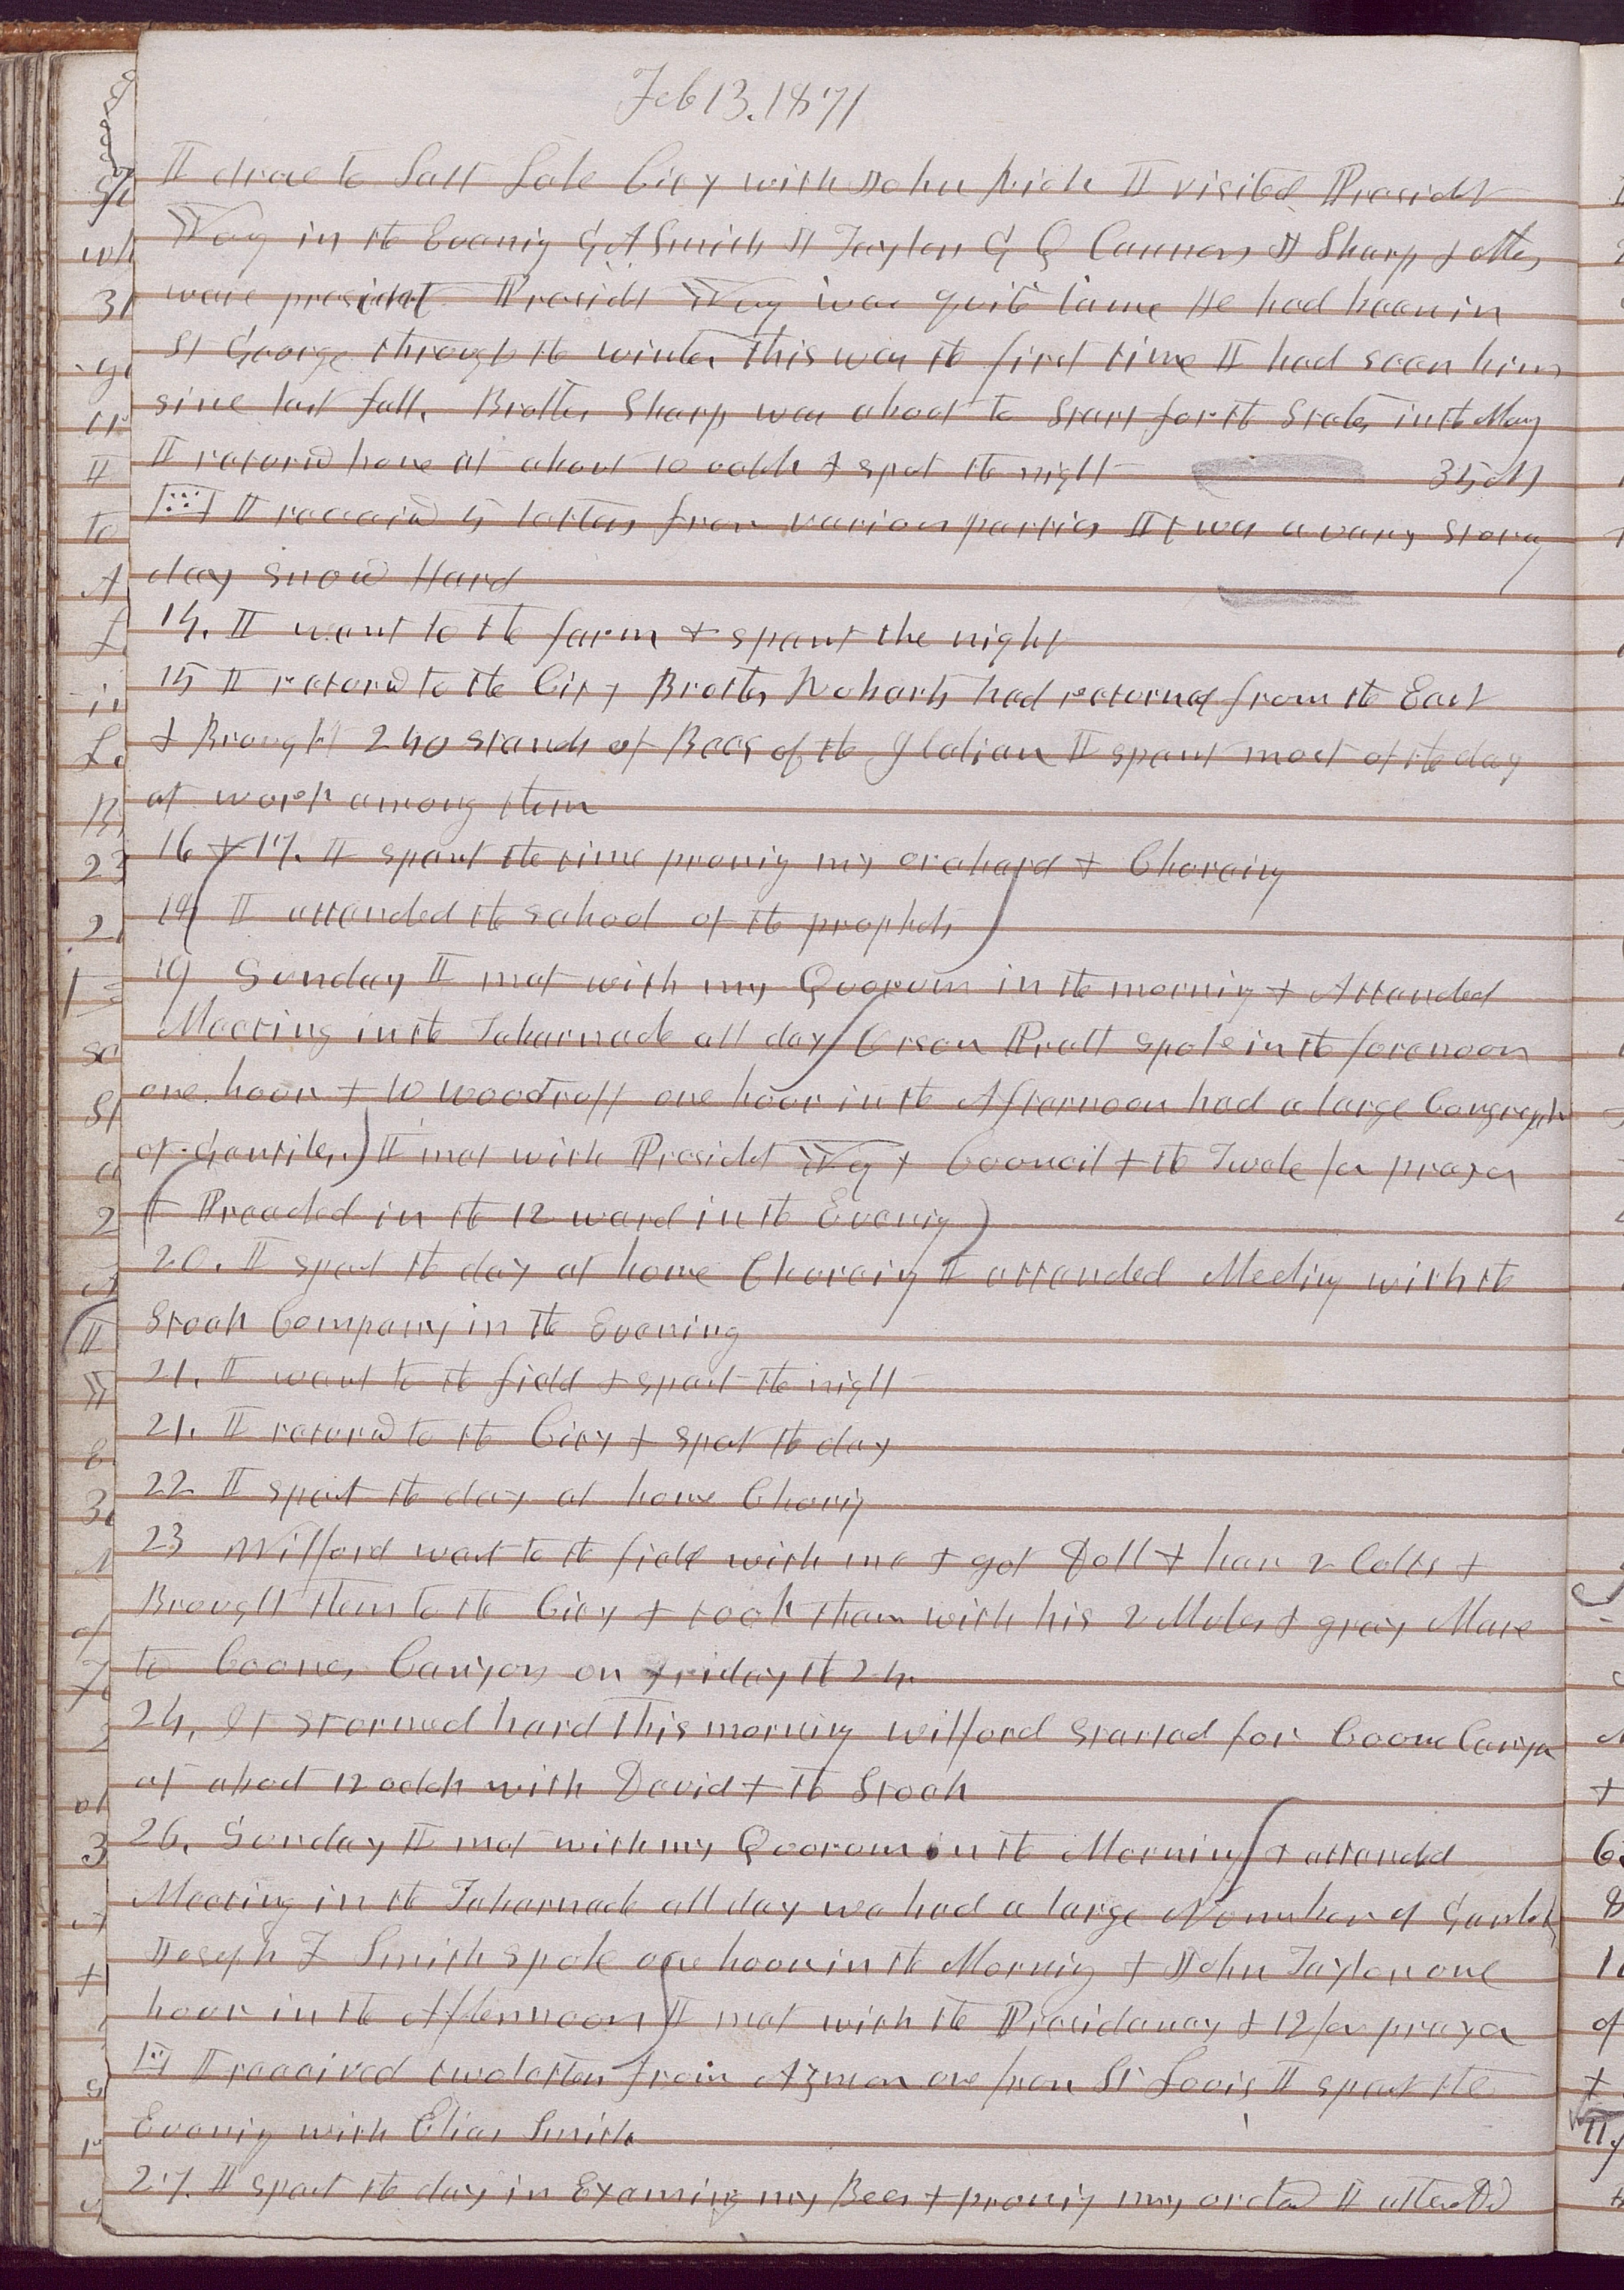 Feb 13. 1871
I drove to Salt Lake City with John Rich I visited Presidet
Yog in the Evenig G A Smith J Taylor G Q Cannon J Sharp & others
ware presidet Presidt Yog was quite lame He had been in
St George through the winter This was the first time I had seen him
sine last fall. Brother Sharp was about to Start for the States in the Mong
I returnd home at about 10 oclok & spet the night 35 M
I receivd 5 letters from various parties It was a vary stormy
day snow Hard
14. I went to the farm & spent the night
15 I returnd to the City Brother Roberts had returned from the East
& Brought 240 stands of Bees of the Italian I spent most of the day
at work among them
16 & 17. I spent the time pruning my orchard & Choreing
18 I attended the school of the prophets
19 Sunday I met with my Quorum in the morning & Attended
Meeting in the Tabarnacle all day Orson Pratt spoke in the forenoon
one hour & W Woodruff one hour in the Afternoon had a large Congregation
of Gentiles I met with Presidet Yog & Council & the Twelve for prayer
& Preached in the 12 ward in the Evenig
20. I spent the day at home Choreing I attended Meeting with the
Stock Company in the Evening
21. I went to the field & spent the night
21. I returnd to the City & spent the day
22 I spent the day at home Choring
23 Wilford went to the field with me & got Doll & har 2 Colts &
Brought them to the City & took them with his 2 Mules & gray Mare
to Coones Canyon on Friday the 24.
24. It stormed hard This morning Wilford Started for Coone Canyon
at about 12 oclok with David & the Stock
26. Sunday I met with my Quorum in the Morning & attended
Meeting in the Tabarnacle all day we had a large Number of Gentiles
Joseph F Smith spoke one hour in the Mornig & John Taylor one
hour in the Afternoon I met with the Presidency & 12 for prayer
I received two letters from Azmon one from St Louis I spent the
Evenig with Elias Smith
27. I spent the day in Examinig my Bees & pruning my orchard I attended